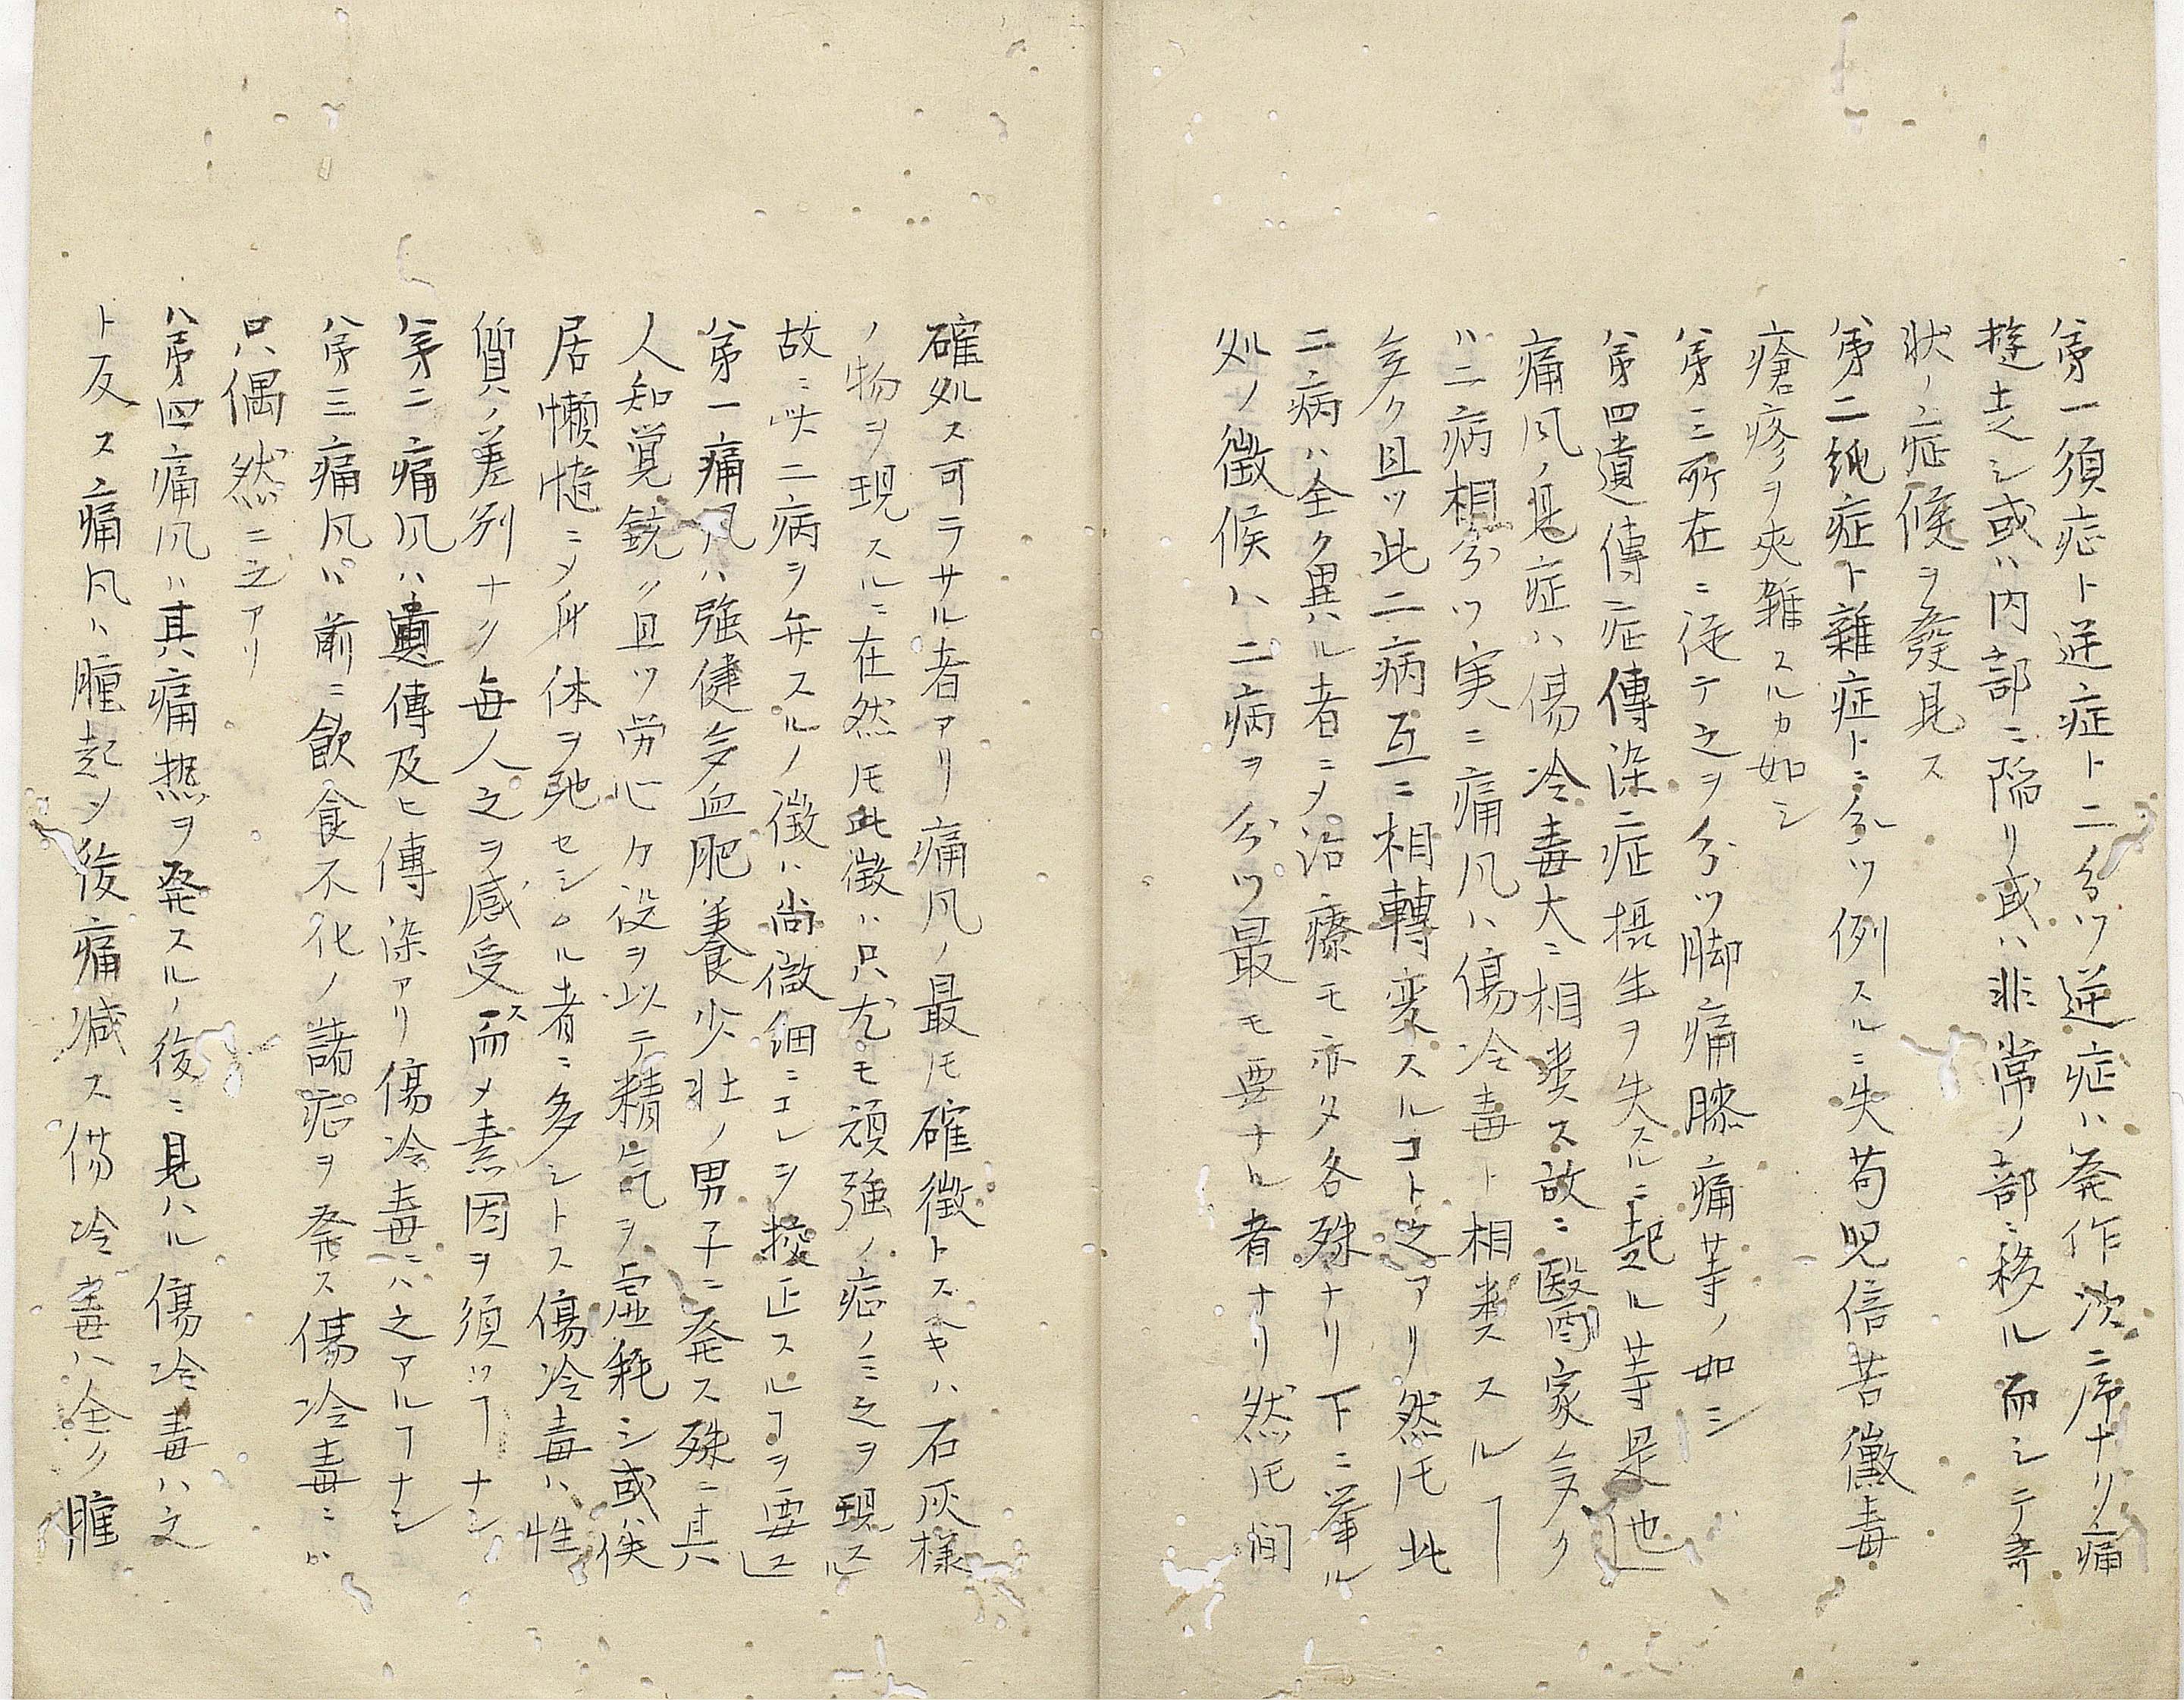 第一須症ト逆症トニ分ツ逆症ハ発作次序ナリ痛
遊走シ或ハ内部ニ陥リ或ハ非常ノ部ニ移ル而シテ奇
状ノ症候ヲ發見ス
第二純症ト雜症トニ分ツ例スルニ失苟児倍苦黴毒
瘡疹ヲ夾雜スルカ如シ
第三所在ニ従テ之ヲ分ツ脚痛膝痛等ノ如シ
第四遺傳症傳染症摂生ヲ失スルニ起ル等是也
痛風ノ見症ハ傷冷毒大ニ相类ス故ニ醫家多ク
ハ二病相分ツ実ニ痛風ハ傷冷毒ト相类スルヿ
多ク且ツ此二病互ニ相轉変スルコト之アリ然𪜈此
二病ハ全ク異ル者ニメ治療モ亦タ各殊ナリ下ニ挙ル
処ノ徴候ハ二病ヲ分ツ最モ要ナル者ナリ然𪜈間
確処ス可ラサル者アリ痛風ノ最𪜈確徴トスヘキハ石灰樣
ノ物ヲ現スルニ在然𪜈此徴ハ只尤モ頑強ノ症ノミ之ヲ現スル
故ニ此二病ヲ弁スルノ徴ハ尚微細ニエレヲ撿正スルヿヲ要ス
第一痛風ハ強健多血肥養少壮ノ男子ニ発ス殊ニ其
人知覚銳ク且ツ労心力役ヲ以テ精气ヲ虚耗シ或ハ佚
居懶惰ニメ身体ヲ弛セシムル者ニ多シトス傷冷毒ハ性
質ノ差別ナク毎人之ヲ感受ス而メ素因ヲ須ツヿナシ
第二痛風ハ遺傳及ヒ傳染アリ傷冷毒ニハ之アルヿナシ
第三痛風ハ前ニ飲食不化ノ諸症ヲ発ス傷冷毒ニハ
只偶然ニ之アリ
第四痛風ハ其痛熱ヲ発スルノ後ニ見ハル傷冷毒ハ之
ト反ス痛風ハ腫起シ後痛減ス傷冷毒ハ全ク腫